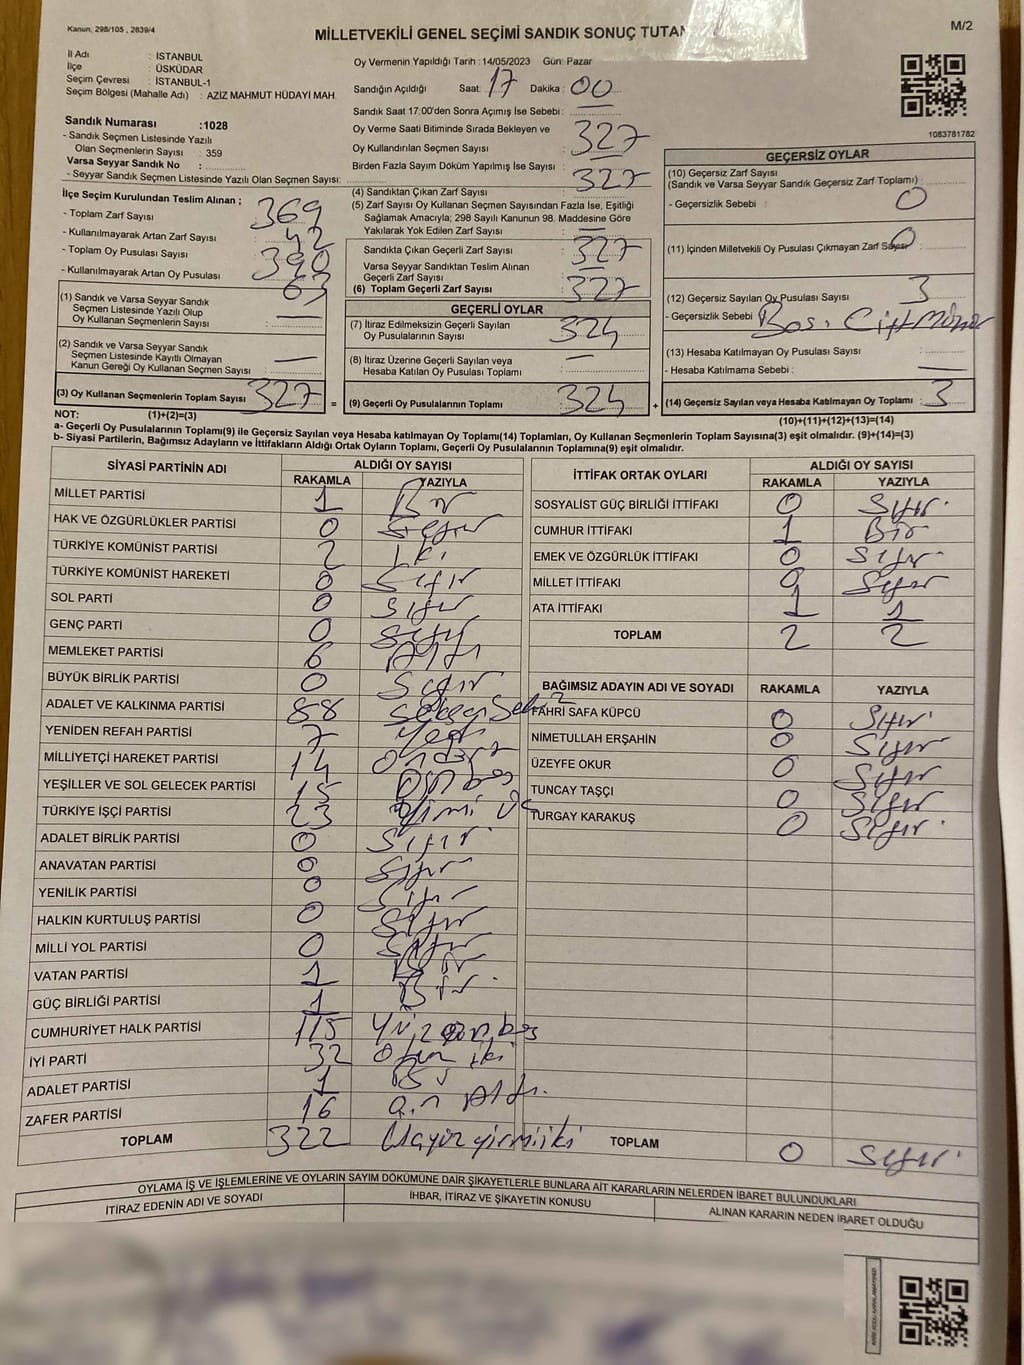 Kanun, 298/105 , 2839/4
MİLLETVEKİLİ GENEL SEÇİMİ SANDIK SONUÇ TUTAN
M/2
İl Adı : İSTANBUL
İlçe : ÜSKÜDAR
Seçim Çevresi : İSTANBUL-1
Seçim Bölgesi (Mahalle Adı) : AZİZ MAHMUT HÜDAYİ MAH.
Sandık Numarası :1028
- Sandık Seçmen Listesinde Yazılı
Olan Seçmenlerin Sayısı : 359
Varsa Seyyar Sandık No :
- Seyyar Sandık Seçmen Listesinde Yazılı Olan Seçmen Sayısı:
Oy Vermenin Yapıldığı Tarih :14/05/2023 Gün: Pazar
Sandığın Açıldığı Saat: 17 Dakika : 00
Sandık Saat 17:00'den Sonra Açımış İse Sebebi :
Oy Verme Saati Bitiminde Sırada Bekleyen ve
Oy Kullandırılan Seçmen Sayısı : 327
Birden Fazla Sayım Döküm Yapılmış İse Sayısı :
1083781782
İlçe Seçim Kurulundan Teslim Alınan ;
- Toplam Zarf Sayısı : 369
- Kullanılmayarak Artan Zarf Sayısı : 42
- Toplam Oy Pusulası Sayısı : 390
- Kullanılmayarak Artan Oy Pusulası : 63
(1) Sandık ve Varsa Seyyar Sandık
Seçmen Listesinde Yazılı Olup
Oy Kullanan Seçmenlerin Sayısı : —
(2) Sandık ve Varsa Seyyar Sandık
Seçmen Listesinde Kayıtlı Olmayan
Kanun Gereği Oy Kullanan Seçmen Sayısı : —
(3) Oy Kullanan Seçmenlerin Toplam Sayısı : 327
(4) Sandıktan Çıkan Zarf Sayısı : 327
(5) Zarf Sayısı Oy Kullanan Seçmen Sayısından Fazla İse, Eşitliği
Sağlamak Amacıyla; 298 Sayılı Kanunun 98. Maddesine Göre
Yakılarak Yok Edilen Zarf Sayısı : —
Sandıkta Çıkan Geçerli Zarf Sayısı : 327
Varsa Seyyar Sandıktan Teslim Alınan
Geçerli Zarf Sayısı : —
(6) Toplam Geçerli Zarf Sayısı : 327
GEÇERLİ OYLAR
(7) İtiraz Edilmeksizin Geçerli Sayılan
Oy Pusulalarının Sayısı : 324
(8) İtiraz Üzerine Geçerli Sayılan veya
Hesaba Katılan Oy Pusulası Toplamı : —
= (9) Geçerli Oy Pusulalarının Toplamı : 324
GEÇERSİZ OYLAR
(10) Geçersiz Zarf Sayısı
(Sandık ve Varsa Seyyar Sandık Geçersiz Zarf Toplamı) :
- Geçersizlik Sebebi : 0
(11) İçinden Milletvekili Oy Pusulası Çıkmayan Zarf Sayısı : 0
(12) Geçersiz Sayılan Oy Pusulası Sayısı : 3
- Geçersizlik Sebebi : Boş. Çift Mühür
(13) Hesaba Katılmayan Oy Pusulası Sayısı :
- Hesaba Katılmama Sebebi : —
+ (14) Geçersiz Sayılan veya Hesaba Katılmayan Oy Toplamı : 3
NOT: (1)+(2)=(3)
(10)+(11)+(12)+(13)=(14)
a- Geçerli Oy Pusulalarının Toplamı(9) ile Geçersiz Sayılan veya Hesaba katılmayan Oy Toplamı(14) Toplamları, Oy Kullanan Seçmenlerin Toplam Sayısına(3) eşit olmalıdır. (9)+(14)=(3)
b- Siyasi Partilerin, Bağımsız Adayların ve İttifakların Aldığı Ortak Oyların Toplamı, Geçerli Oy Pusulalarının Toplamına(9) eşit olmalıdır.
SİYASİ PARTİNİN ADI ALDIĞI OY SAYISI
RAKAMLA YAZIYLA
MİLLET PARTİSİ 1 Bir
HAK VE ÖZGÜRLÜKLER PARTİSİ 0 Sıfır
TÜRKİYE KOMÜNİST PARTİSİ 2 İki
TÜRKİYE KOMÜNİST HAREKETİ 0 Sıfır
SOL PARTİ 0 Sıfır
GENÇ PARTİ 0 Sıfır
MEMLEKET PARTİSİ 6 Altı
BÜYÜK BİRLİK PARTİSİ 0 Sıfır
ADALET VE KALKINMA PARTİSİ 88 Seksen Sekiz
YENİDEN REFAH PARTİSİ 7 Yedi
MİLLİYETÇİ HAREKET PARTİSİ 14 Ondört
YEŞİLLER VE SOL GELECEK PARTİSİ 15 Onbeş
TÜRKİYE İŞÇİ PARTİSİ 23 Yirmi Üç
ADALET BİRLİK PARTİSİ 0 Sıfır
ANAVATAN PARTİSİ 0 Sıfır
YENİLİK PARTİSİ 0 Sıfır
HALKIN KURTULUŞ PARTİSİ 0 Sıfır
MİLLİ YOL PARTİSİ 0 Sıfır
VATAN PARTİSİ 1 Bir
GÜÇ BİRLİĞİ PARTİSİ 1 Bir
CUMHURİYET HALK PARTİSİ 115 Yüz onbeş
İYİ PARTİ 32 Otuz iki
ADALET PARTİSİ 1 Bir
ZAFER PARTİSİ 16 On Altı.
TOPLAM 322 Üçyüz yirmiiki
İTTİFAK ORTAK OYLARI ALDIĞI OY SAYISI
RAKAMLA YAZIYLA
SOSYALİST GÜÇ BİRLİĞİ İTTİFAKI 0 Sıfır.
CUMHUR İTTİFAKI 1 Bir
EMEK VE ÖZGÜRLÜK İTTİFAKI 0 Sıfır.
MİLLET İTTİFAKI 0 Sıfır
ATA İTTİFAKI 1 1
TOPLAM 2 2
BAĞIMSIZ ADAYIN ADI VE SOYADI RAKAMLA YAZIYLA
FAHRİ SAFA KÜPCÜ 0 Sıfır.
NİMETULLAH ERŞAHİN 0 Sıfır
ÜZEYFE OKUR 0 Sıfır
TUNCAY TAŞÇI 0 Sıfır
TURGAY KARAKUŞ 0 Sıfır.
TOPLAM 0 Sıfır.
OYLAMA İŞ VE İŞLEMLERİNE VE OYLARIN SAYIM DÖKÜMÜNE DAİR ŞİKAYETLERLE BUNLARA AİT KARARLARIN NELERDEN İBARET BULUNDUKLARI
İTİRAZ EDENİN ADI VE SOYADI
İHBAR, İTİRAZ VE ŞİKAYETİN KONUSU
ALINAN KARARIN NEDEN İBARET OLDUĞU